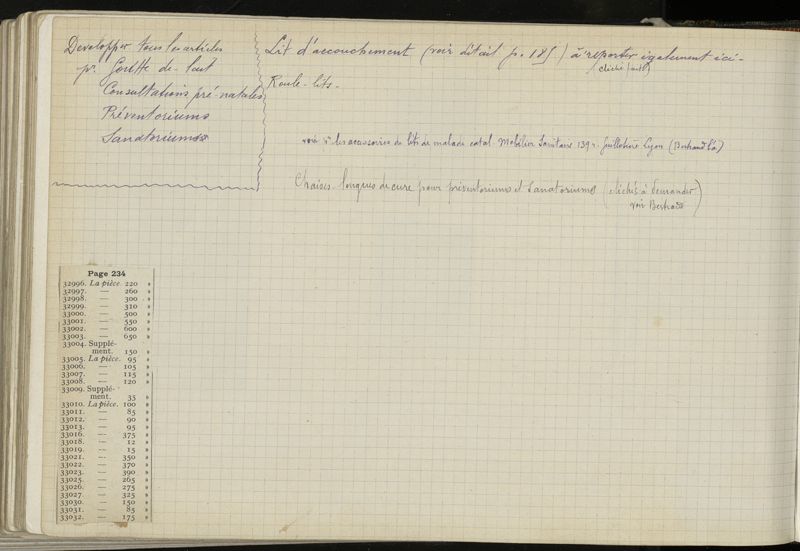 Developper tous les articles
pr. Goutte de lait
Consultations pré-natales
Préventoriums
Sanatoriums
Lit d'accouchement (voir détail p. 185) à reporter également ici -
cliché
Roule-lits -
voir pr les accessoires de lits de malade catal. Mobilier Sanitaire 139 r. Guillotière Lyon (Bertrand
Chaises longues de cure pour préventoriums et Sanatoriums (clichés à demander
voir
Page 234
32996. La pièce. 220 »
32997. — 260 »
32998. — 300 »
32999. — 310 »
33000. — 500 »
33001. — 550 »
33002. — 600 »
33003. — 650 »
33004. Supplé-
ment. 150 »
33005. La pièce. 95 »
33006. — 105 »
33007. — 115 »
33008. — 120 »
33009. Supplé-
ment. 35 »
33010. La pièce. 100 »
33011. — 85 »
33012. — 90 »
33013. — 95 »
33016. — 375 »
33018. — 12 »
33019. — 15 »
33021. — 350 »
33022. — 370 »
33023. — 390 »
33025. — 265 »
33026. — 275 »
33027. — 325 »
33030. — 150 »
33031. — 85 »
33032. — 175 »